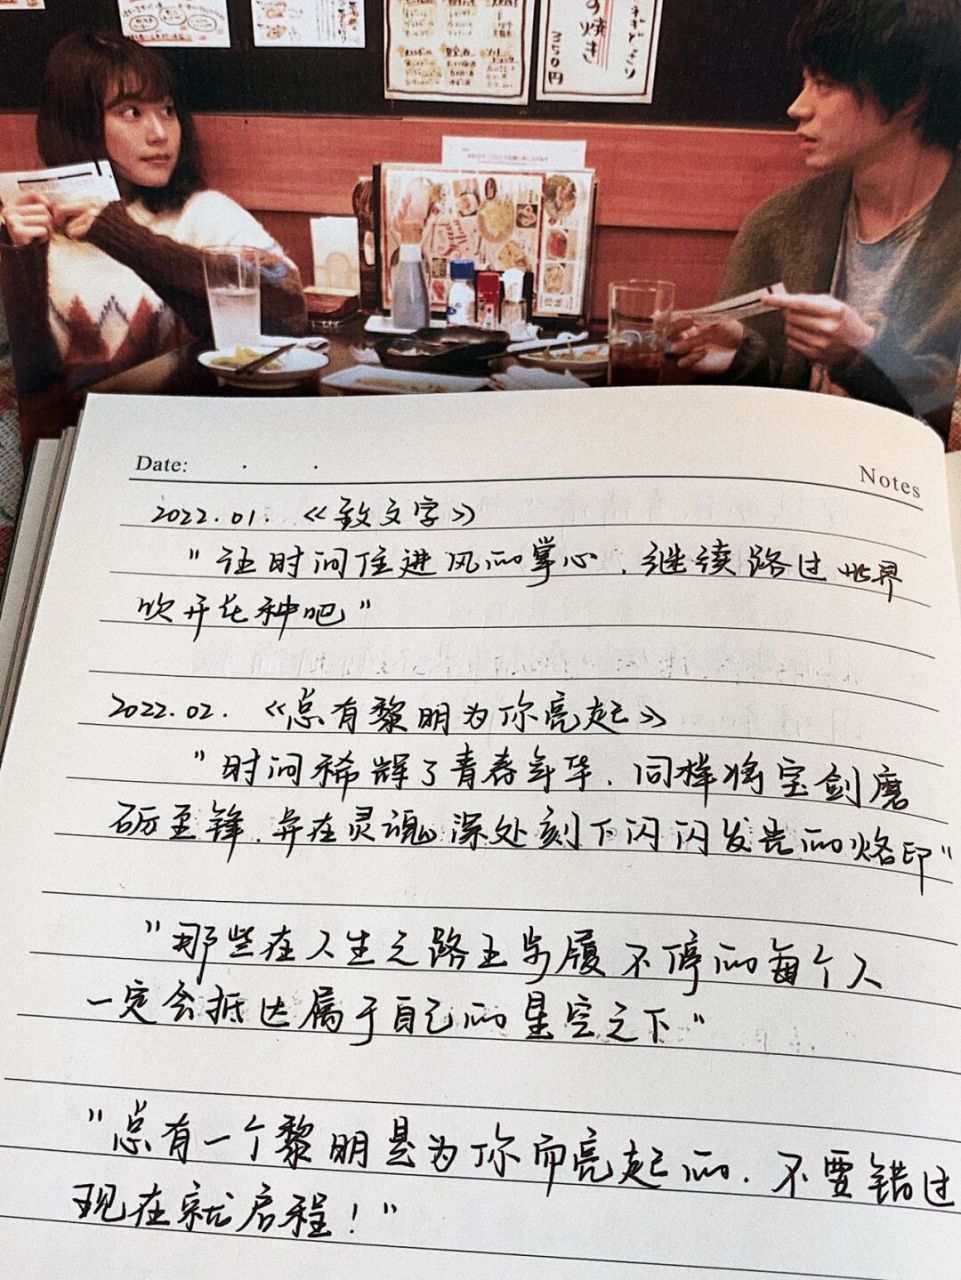 焼き
350円
Date: . .
Notes
2022.01. 《致文字》
"让时间住进风的掌心，继续路过世界
吹开花种吧"
2022.02. 《总有黎明为你亮起》
"时间稀辉了青春年华，同样将宝剑磨
砺至锋，并在灵魂深处刻下闪闪发光的烙印"
"那些在人生之路上步履不停的每个人
一定会抵达属于自己的星空之下"
"总有一个黎明是为你而亮起的，不要错过
现在就启程！"